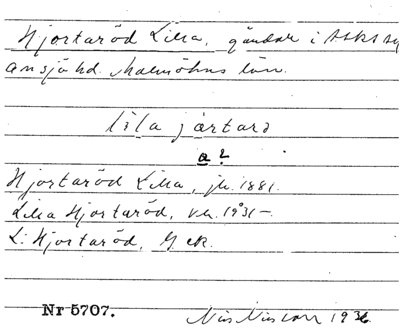 Hjortaröd Lilla, gårdar i
Onsjö hd. Malmöhus län.
lila jartarö
a ?
Hjortaröd Lilla, jb. 1881.
Lilla Hjortaröd, 1931 –
L: Hjortaröd, G ek.
Nr 5707. Nils Nilsson 1936